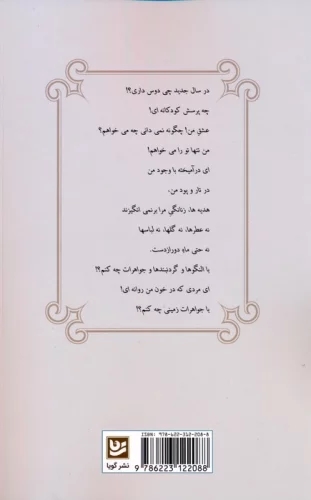 در سال جدید چی دوس داری؟!
چه پرسش کودکانه ای!
عشقِ من! چگونه نمی دانی چه می خواهم؟
من تنها تو را می خواهم!
ای درآمیخته با وجود من
در تار و پود من.
هدیه ها، زنانگیِ مرا برنمی انگیزند
نه عطرها، نه گلها، نه لباسها
نه حتی ماهِ دورازدست.
با النگوها و گردنبندها و جواهرات چه کنم؟!
ای مردی که در خون من روانه ای!
با جواهرات زمینی چه کنم؟!
ISBN: 978-622-312-208-8
9 786223 122088
نشر گویا